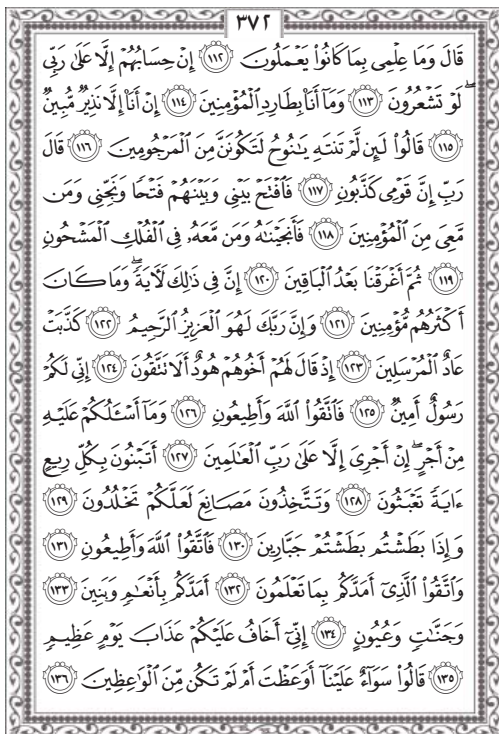 ٣٧٢
قَالَ وَمَا عِلْمِى بِمَا كَانُوا۟ يَعْمَلُونَ ١١٢ إِنْ حِسَابُهُمْ إِلَّا عَلَىٰ رَبِّى
لَوْ تَشْعُرُونَ ١١٣ وَمَآ أَنَا۠ بِطَارِدِ ٱلْمُؤْمِنِينَ ١١٤ إِنْ أَنَا۠ إِلَّا نَذِيرٌ مُّبِينٌ
١١٥ قَالُوا۟ لَئِن لَّمْ تَنتَهِ يَـٰنُوحُ لَتَكُونَنَّ مِنَ ٱلْمَرْجُومِينَ ١١٦ قَالَ
رَبِّ إِنَّ قَوْمِى كَذَّبُونِ ١١٧ فَٱفْتَحْ بَيْنِى وَبَيْنَهُمْ فَتْحًا وَنَجِّنِى وَمَن
مَّعِىَ مِنَ ٱلْمُؤْمِنِينَ ١١٨ فَأَنجَيْنَـٰهُ وَمَن مَّعَهُۥ فِى ٱلْفُلْكِ ٱلْمَشْحُونِ
١١٩ ثُمَّ أَغْرَقْنَا بَعْدُ ٱلْبَاقِينَ ١٢٠ إِنَّ فِى ذَٰلِكَ لَـَٔايَةً ۖ وَمَا كَانَ
أَكْثَرُهُم مُّؤْمِنِينَ ١٢١ وَإِنَّ رَبَّكَ لَهُوَ ٱلْعَزِيزُ ٱلرَّحِيمُ ١٢٢ كَذَّبَتْ
عَادٌ ٱلْمُرْسَلِينَ ١٢٣ إِذْ قَالَ لَهُمْ أَخُوهُمْ هُودٌ أَلَا تَتَّقُونَ ١٢٤ إِنِّى لَكُمْ
رَسُولٌ أَمِينٌ ١٢٥ فَٱتَّقُوا۟ ٱللَّهَ وَأَطِيعُونِ ١٢٦ وَمَآ أَسْـَٔلُكُمْ عَلَيْهِ
مِنْ أَجْرٍ ۖ إِنْ أَجْرِىَ إِلَّا عَلَىٰ رَبِّ ٱلْعَـٰلَمِينَ ١٢٧ أَتَبْنُونَ بِكُلِّ رِيعٍ
ءَايَةً تَعْبَثُونَ ١٢٨ وَتَتَّخِذُونَ مَصَانِعَ لَعَلَّكُمْ تَخْلُدُونَ ١٢٩
وَإِذَا بَطَشْتُم بَطَشْتُمْ جَبَّارِينَ ١٣٠ فَٱتَّقُوا۟ ٱللَّهَ وَأَطِيعُونِ ١٣١
وَٱتَّقُوا۟ ٱلَّذِىٓ أَمَدَّكُم بِمَا تَعْلَمُونَ ١٣٢ أَمَدَّكُم بِأَنْعَـٰمٍ وَبَنِينَ ١٣٣
وَجَنَّـٰتٍ وَعُيُونٍ ١٣٤ إِنِّىٓ أَخَافُ عَلَيْكُمْ عَذَابَ يَوْمٍ عَظِيمٍ
١٣٥ قَالُوا۟ سَوَآءٌ عَلَيْنَآ أَوَعَظْتَ أَمْ لَمْ تَكُن مِّنَ ٱلْوَٰعِظِينَ ١٣٦